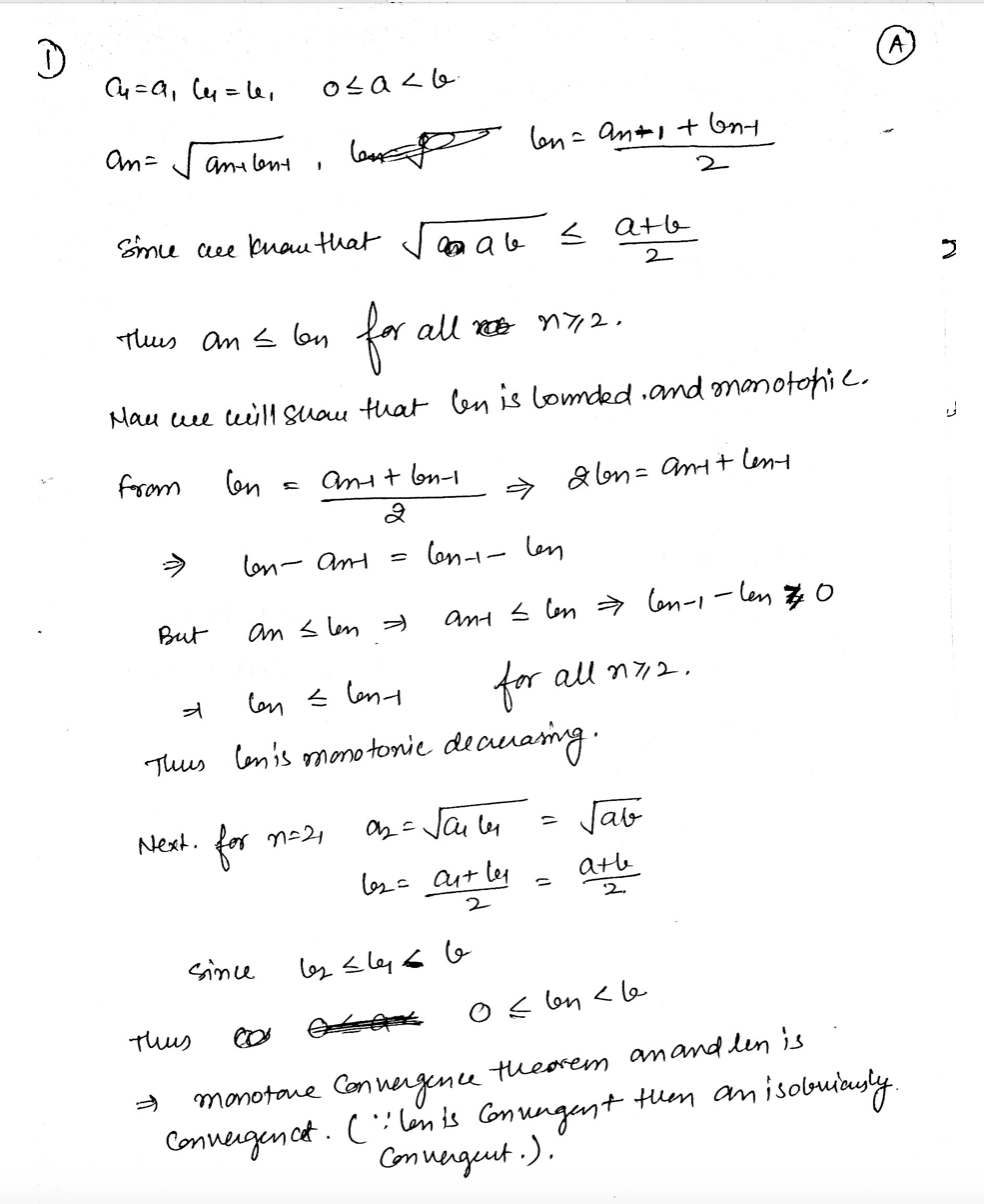 1)
A
a₁=a, b₁=b, 0≤a<b
aₙ=√(aₙ₋₁bₙ₋₁), bₙ= (aₙ₊₁+bₙ₋₁)/2
Since we know that √(ab) ≤ (a+b)/2
Thus aₙ ≤ bₙ for all n≥2.
Now we will show that bₙ is bounded.and monotonic.
from bₙ = (aₙ₋₁+bₙ₋₁)/2 ⇒ 2bₙ= aₙ₋₁+bₙ₋₁
⇒ bₙ-aₙ₋₁ = bₙ₋₁-bₙ
But aₙ ≤bₙ ⇒ aₙ₋₁ ≤ bₙ ⇒ bₙ₋₁-bₙ ≥ 0
⇒ bₙ ≤ bₙ₋₁ for all n≥2.
Thus bₙ is monotonic decreasing.
Next. for n=2, a₂=√(a₁b₁) = √(ab)
b₂= (a₁+b₁)/2 = (a+b)/2
Since b₂ ≤b₁ ≤ b
Thus 0 ≤ bₙ <b
⇒ monotone Convergence theorem aₙ and bₙ is
Convergenct. (∵ bₙ is Convergent then aₙ is obviously.
Convergent.).